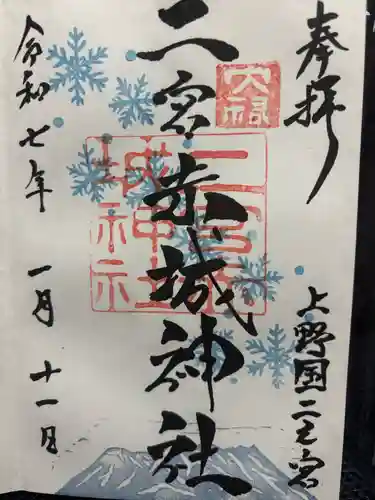 奉拝
上野国二之宮
二宮赤城神社
二宮赤城神社
令和七年 一月 十一日